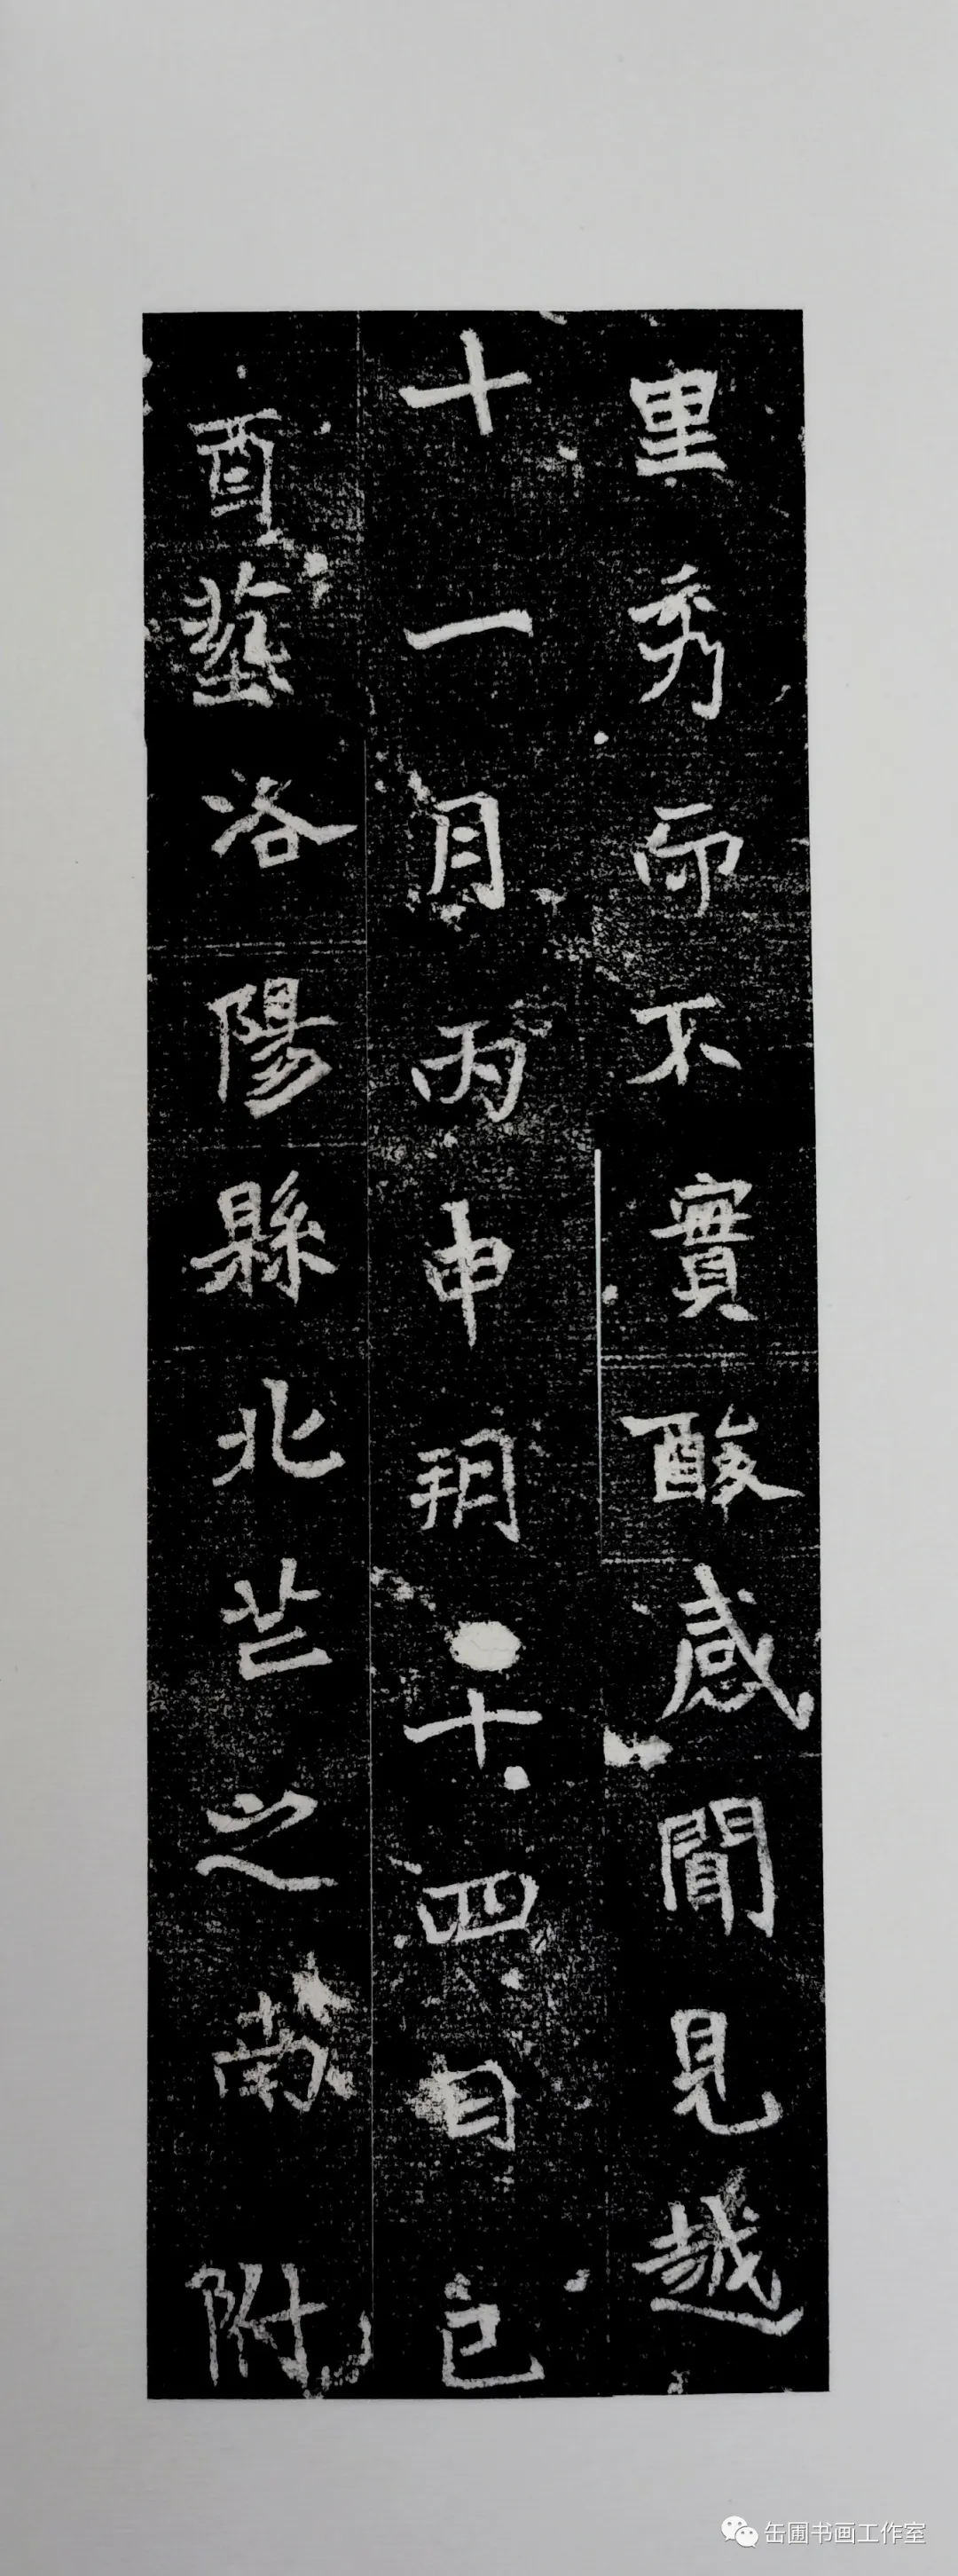 里秀而不實酸感聞見越
十一月丙申朔十四日己
酉塟洛陽縣北芒之南附
缶圃书画工作室